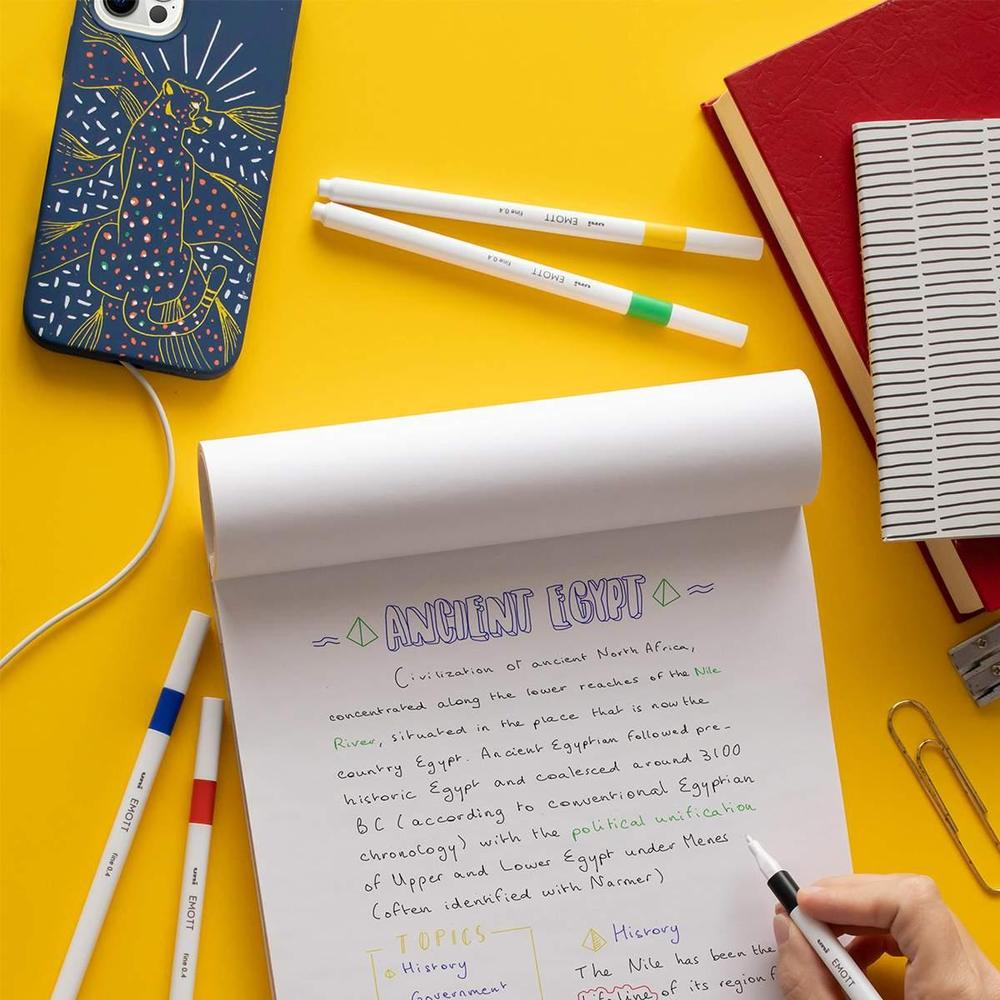 uni EMOTT fine 0.4
uni EMOTT fine 0.4
ANCIENT EGYPT
Civilization of ancient North Africa,
concentrated along the lower reaches of the Nile
River, situated in the place that is now the
country Egypt. Ancient Egyptian followed pre-
historic Egypt and coalesced around 3100
BC (according to conventional Egyptian
chronology) with the political unification
of Upper and Lower Egypt under Menes
(often identified with Narmer)
TOPICS
History
Government
History
The Nile has been the
lifeline of its region f
uni EMOTT fine 0.4
uni EMOTT fine 0.4
uni EMOTT